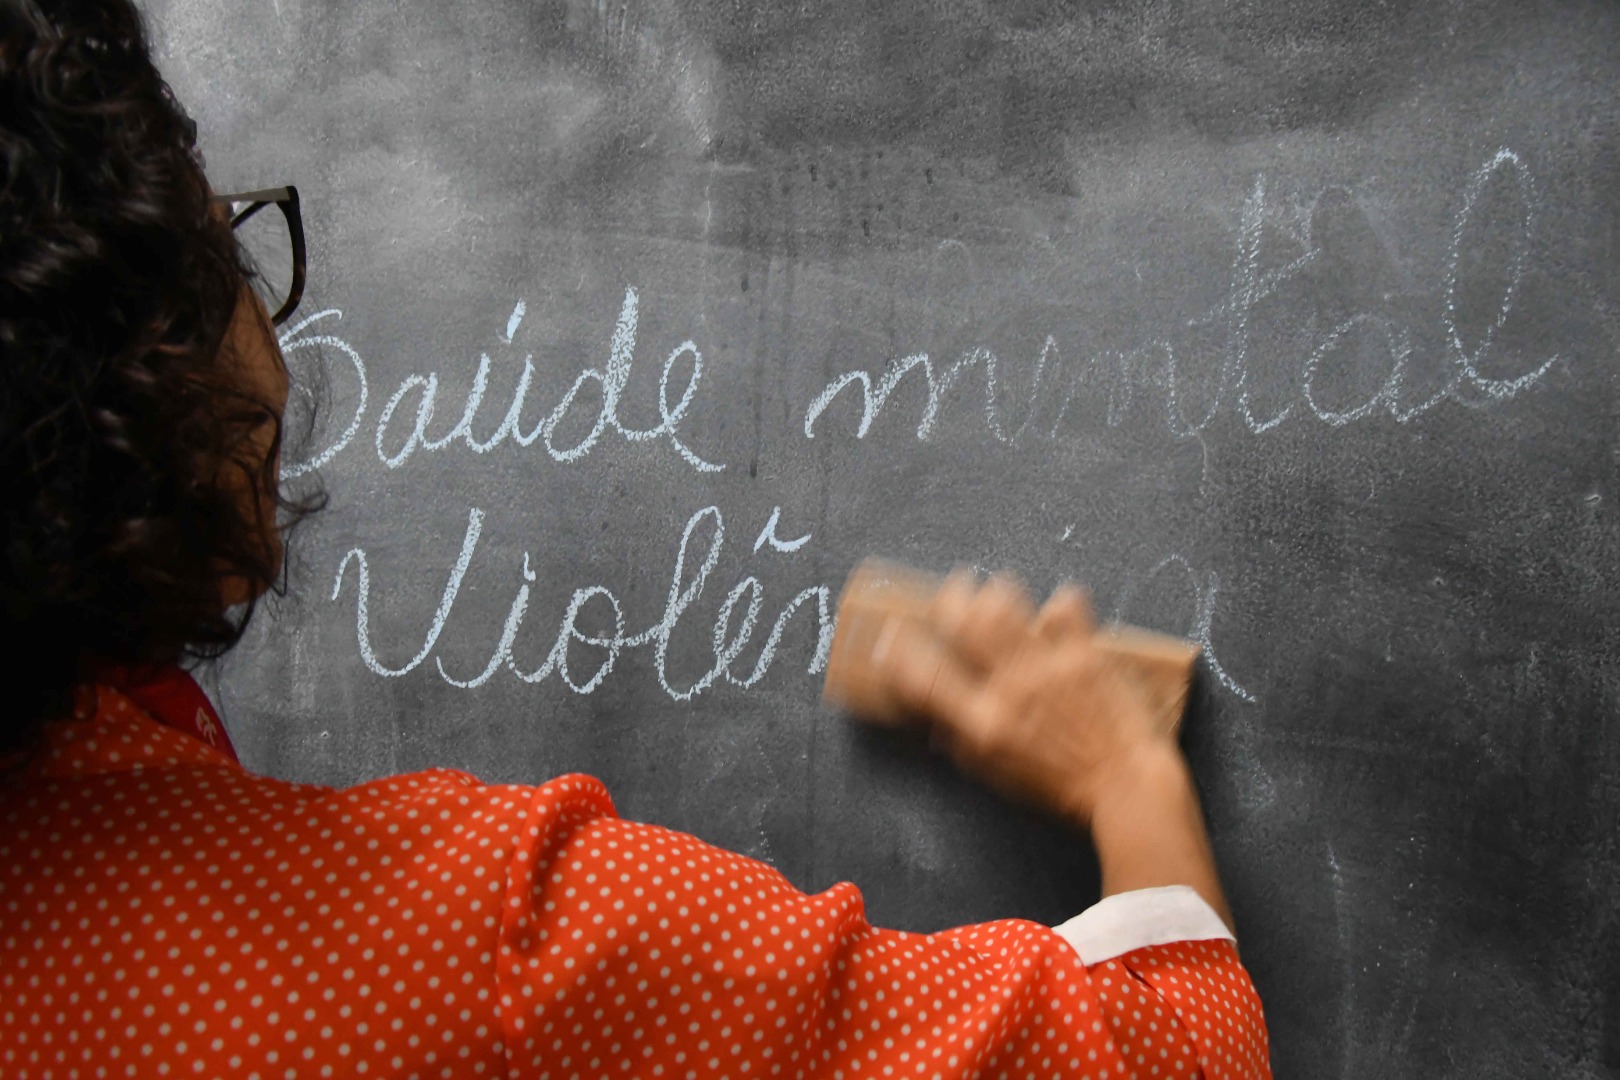 Saúde mental
Violência